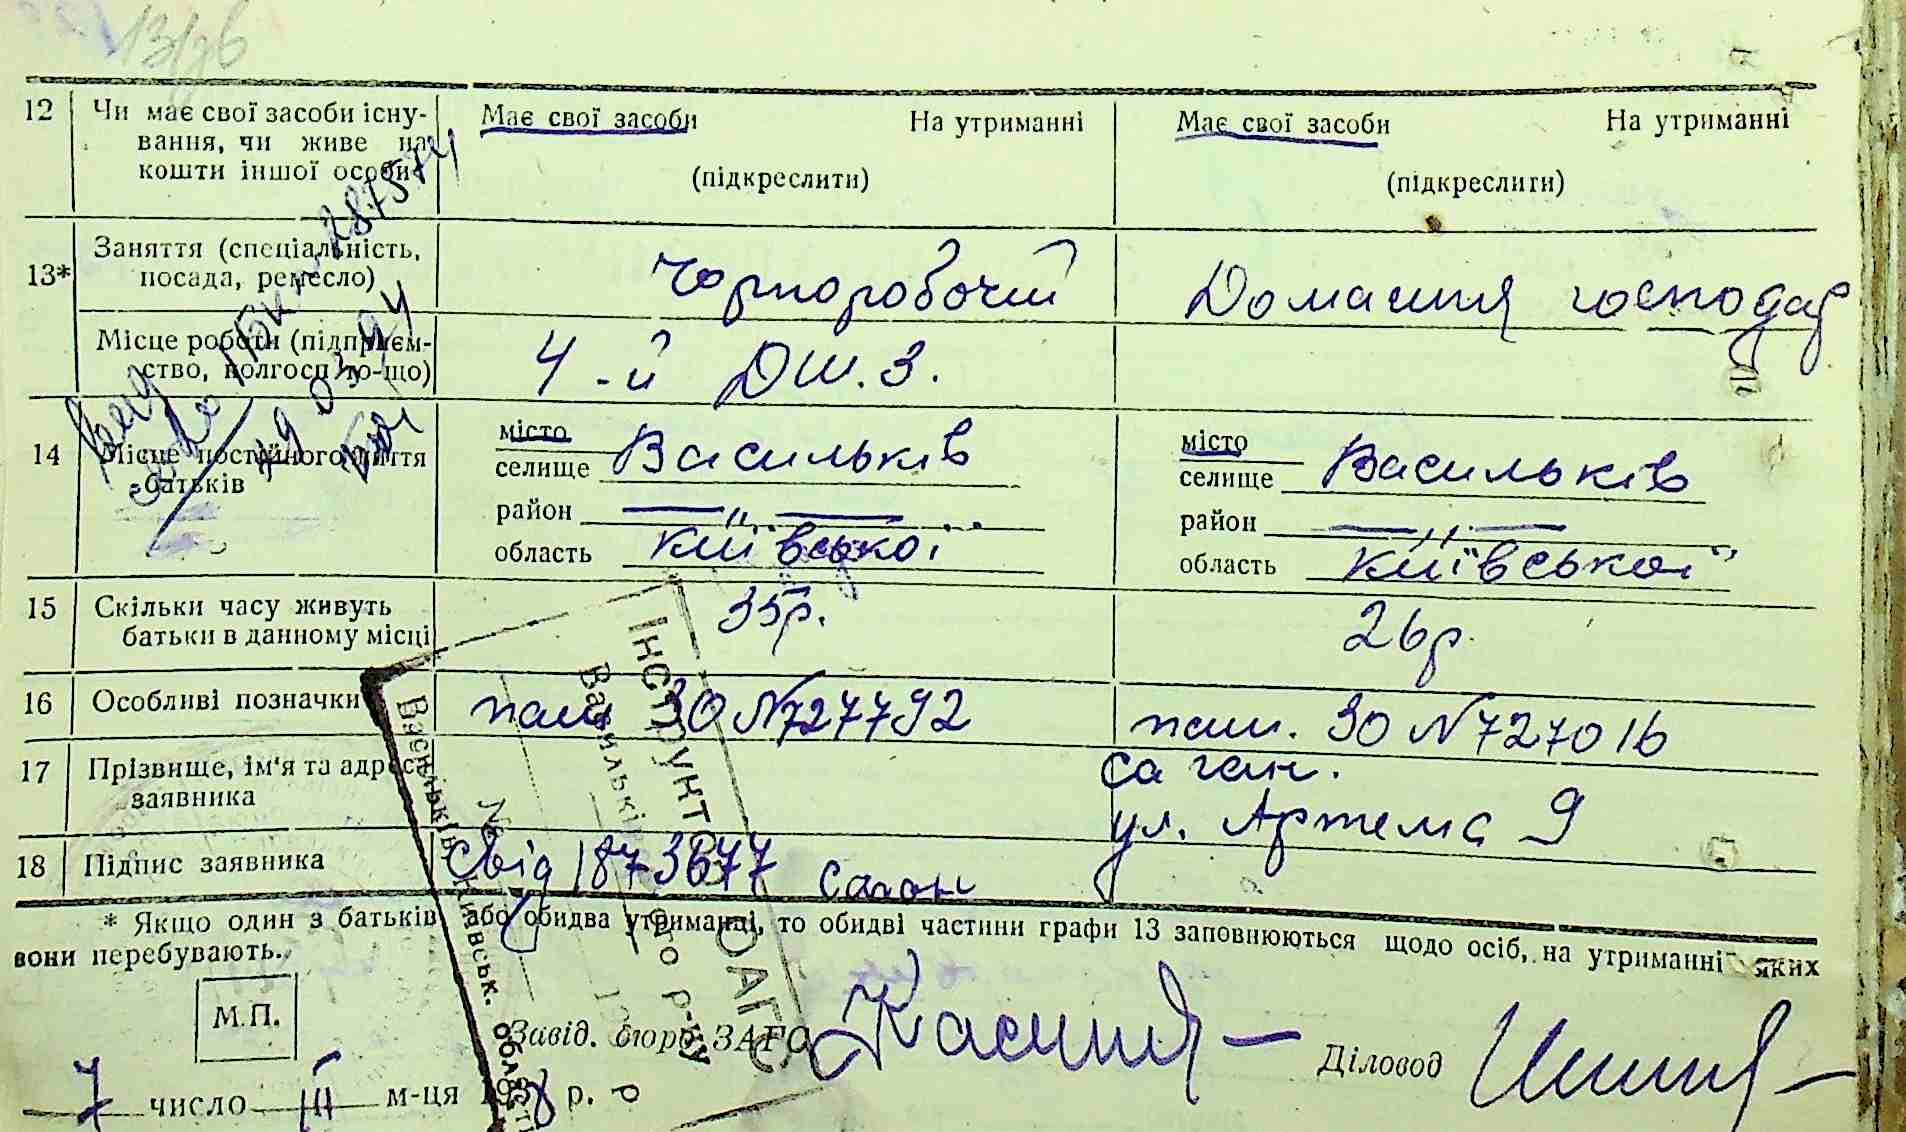 13/зв
12 Чи має свої засоби існу- Має свої засоби На утриманні Має свої засоби На утриманні
вання, чи живе на
кошти іншої особи (підкреслити) (підкреслити)
13* Заняття (спеціальність,
посада, ремесло) Чорноробочий Домашня господар
Місце роботи (підприєм-
ство, колгосп то-що) 4-й ДШ.З.
14 Місце постійного життя місто місто
батьків селище Васильків селище Васильків
район — " — район — " —
область Київської область Київської
15 Скільки часу живуть
батьки в данному місці 35р. 26р.
16 Особливі позначки пасп 30 № 727792 пасп. 30 № 727016
17 Прізвище, ім'я та адреса Саган.
заявника ул. Артема 9
18 Підпис заявника Свід 1873677 Саган
* Якщо один з батьків або обидва утриманці, то обидві частини графи 13 заповнюються щодо осіб, на утриманні яких
вони перебувають.
М.П.
Завід. бюро ЗАГС
Діловод
7 число III м-ця 1938 р.
Інструнт ОАГС
Васильківського р-ну
Васильків. Київськ. області
№